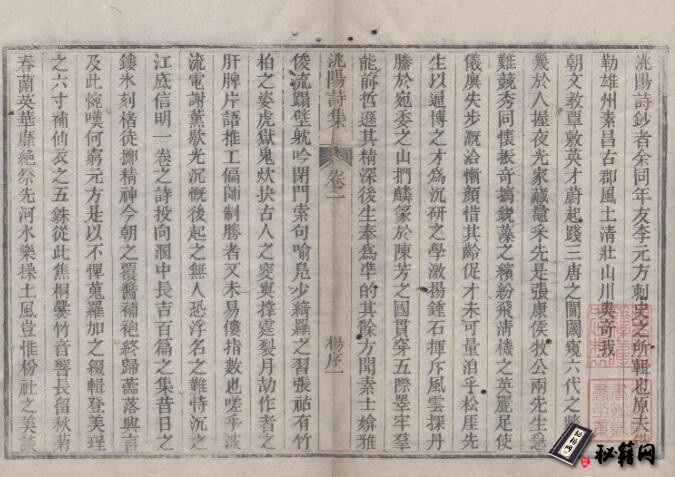 洮陽詩鈔者余同年友李元方刺史之所輯也原夫
勒雄州素昌古郡風土清壯山川奧奇我
朝文教覃敷英才蔚起踐三唐之閫閾窺六代之
幾於人握夜光家藏鼉采先是張康侯牧公兩先生
難競秀同懷振奇摛銳藻之繽紛飛清機之英麗足使
儀廙失步溉洽慚顏惜其齡促才未可量泊乎松厓先
生以逼博之才爲沉研之學激揚鍾石揮斥風雲探丹
勝於宛委之山捫麟篆於陳芳之國貫穿五際睪牢羣
能前哲遜其精深後生奉爲凖的其餘方聞素士媕雅
俊流躡壁就吟閉門索句喻鳧少綺羅之習張祜有竹
柏之姿虎獄鬼炊抉古人之窔奧撐霆裂月劫作者之
肝脾片語推工偏師制勝者又未易僂指數也嗟乎波
流電謝薰歇光沉慨後起之無人恐浮名之難恃沉之
江底信明一卷之詩投向溷中長吉百篇之集昔日之
鏤氷刻楮徒擲精神今朝之覆醬補袍終歸蕩落興言
及此惋嘆何窮元方是以不憚蒐羅加之綴輯登美珵
之六寸補仙衣之五銖從此焦桐爨竹音響長留秋菊
春蘭英華靡絶祭先河水樂操土風豈惟枌社之美談
洮陽詩集
卷一
楊序一
秘籍网